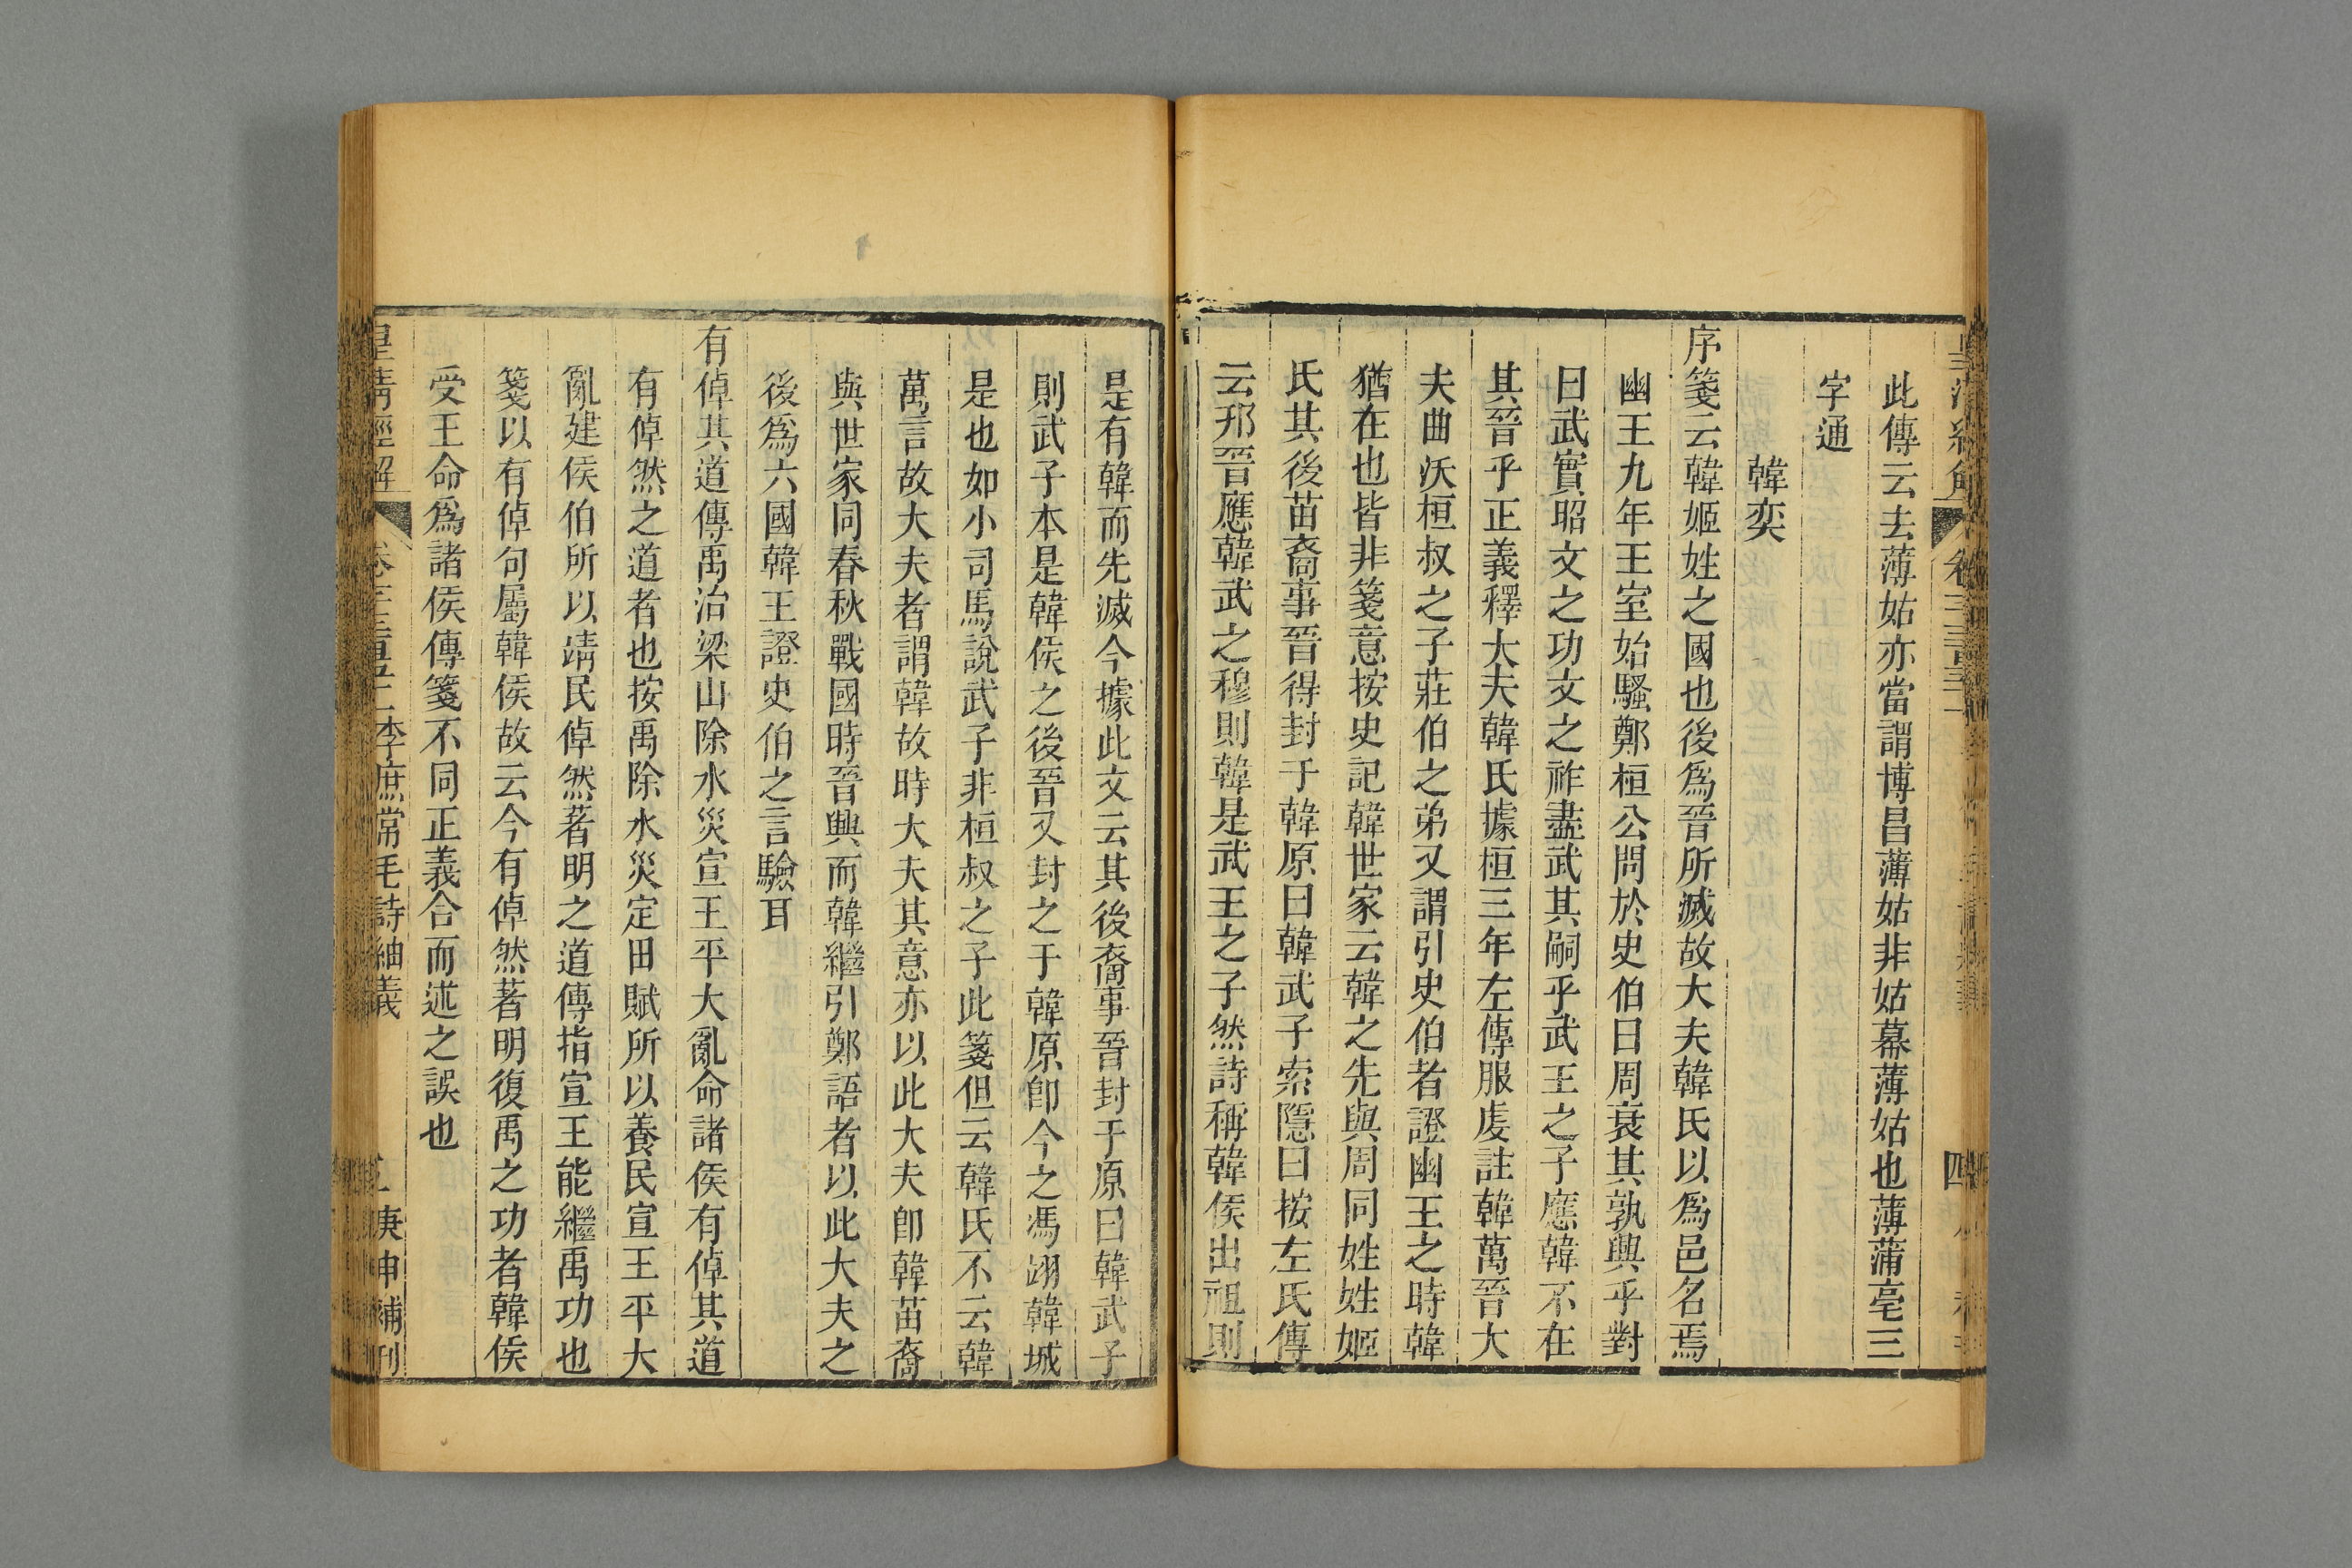 此傳云去薄姑亦當謂博昌薄姑非姑幕薄姑也薄蒲亳三
字通
韓奕
序箋云韓姬姓之國也後爲晉所滅故大夫韓氏以爲邑名焉
幽王九年王室始騷鄭桓公問於史伯曰周衰其孰興乎對
曰武實昭文之功文之祚盡武其嗣乎武王之子應韓不在
其晉乎正義釋大夫韓氏據桓三年左傳服虔註韓萬晉大
夫曲沃桓叔之子莊伯之弟又謂引史伯者證幽王之時韓
猶在也皆非箋意按史記韓世家云韓之先與周同姓姓姬
氏其後苗裔事晉得封于韓原曰韓武子索隱曰按左氏傳
云邘晉應韓武之穆則韓是武王之子然詩稱韓侯出祖則
是有韓而先滅今據此文云其後裔事晉封于原曰韓武子
則武子本是韓侯之後晉又封之于韓原卽今之馮翊韓城
是也如小司馬說武子非桓叔之子此箋但云韓氏不云韓
萬言故大夫者謂韓故時大夫其意亦以此大夫卽韓苗裔
與世家同春秋戰國時晉興而韓繼引鄭語者以此大夫之
後爲六國韓王證史伯之言驗耳
有倬其道傳禹治梁山除水災宣王平大亂命諸侯有倬其道
有倬然之道者也按禹除水災定田賦所以養民宣王平大
亂建侯伯所以靖民倬然著明之道傳指宣王能繼禹功也
箋以有倬句屬韓侯故云今有倬然著明復禹之功者韓侯
受王命爲諸侯傳箋不同正義合而述之誤也
皇清經解 李庶常毛詩紬義 庚申補刊